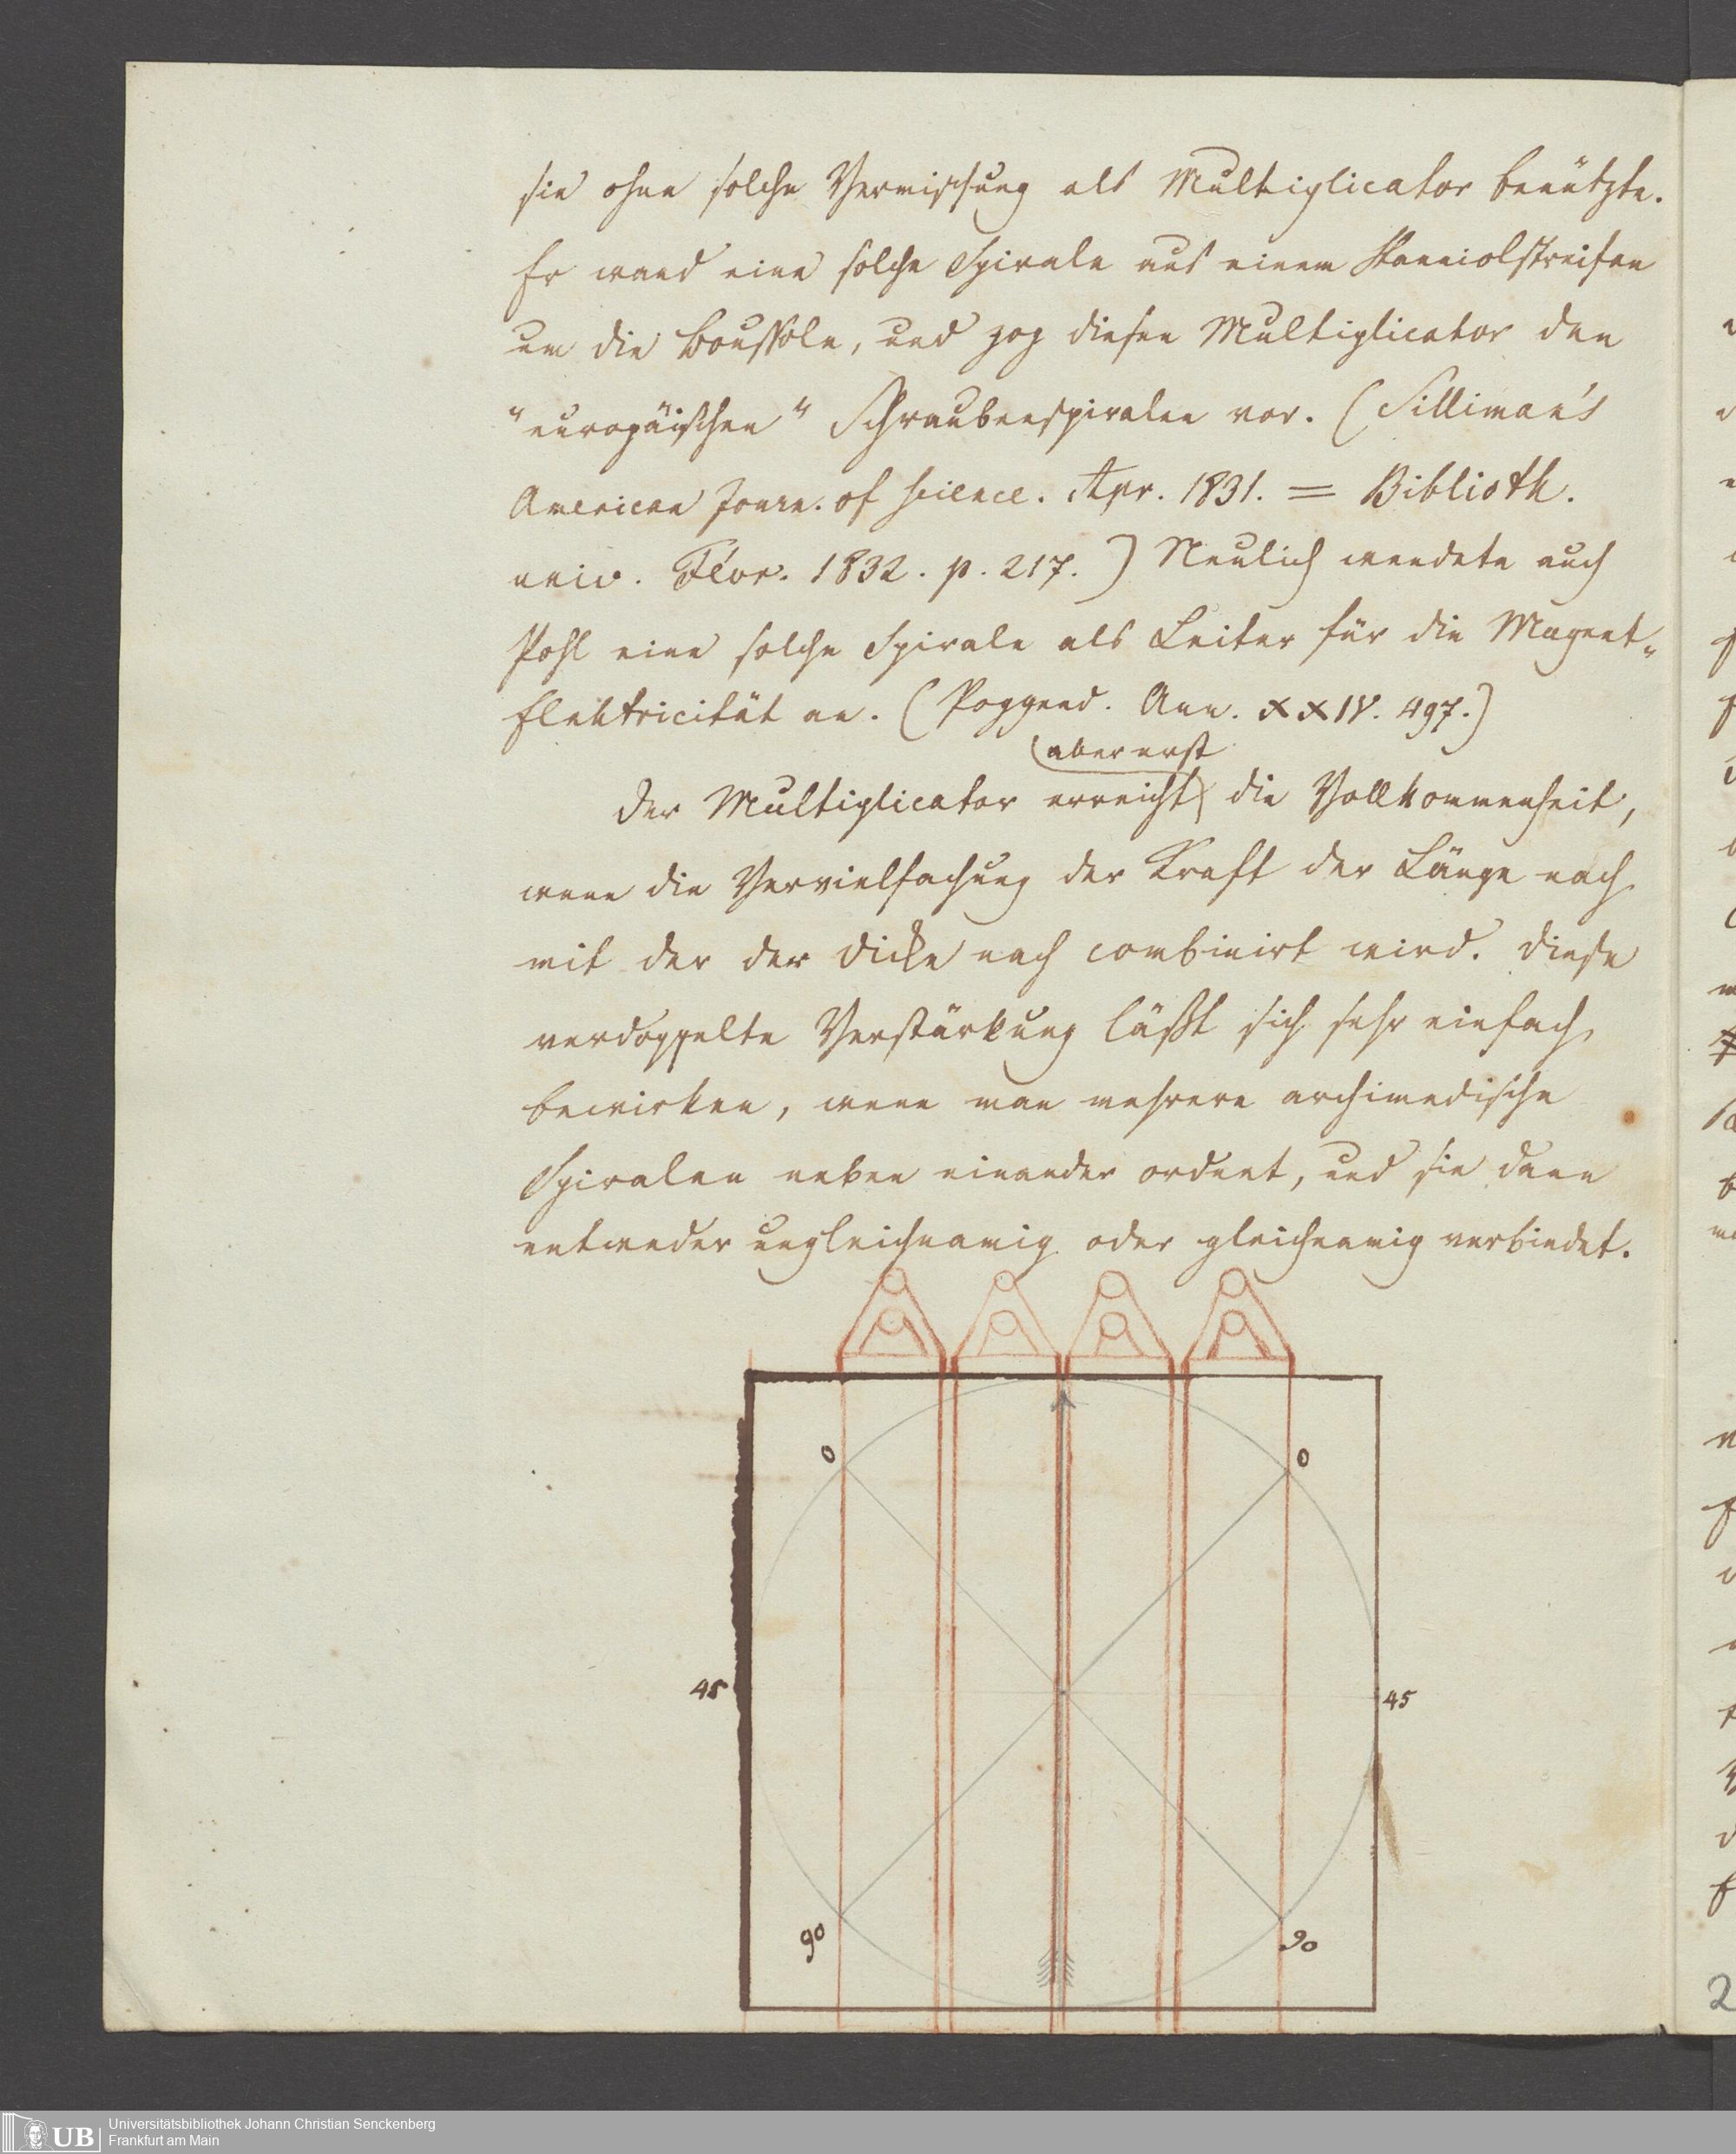 sie ohne solche Vermischung als Multiplicator benützte.
Er wand eine solche Spirale aus einem Stanniolstreifen
um die Boussole, und zog diesen Multiplicator den
"europäischen" Schraubenspiralen vor. (Silliman's
American Journ. of science. Apr. 1831. = Biblioth.
univ. Févr. 1832. p. 217.) Neulich wendete auch
Pohl eine solche Spirale als Leiter für die Magnet-
Elektricität an. (Poggend. Ann. XXIV. 497.)
aber erst
Der Multiplicator erreicht die Vollkommenheit,
wenn die Vervielfachung der Kraft der Länge nach
mit der der Dicke nach combinirt wird. Diese
verdoppelte Verstärkung läßt sich sehr einfach
bewirken, wenn man mehrere archimedische
Spiralen neben einander ordnet, und sie dann
entweder ungleichnamig oder gleichnamig verbindet.
0
0
45
45
90
90
2
UB
Universitätsbibliothek Johann Christian Senckenberg
Frankfurt am Main